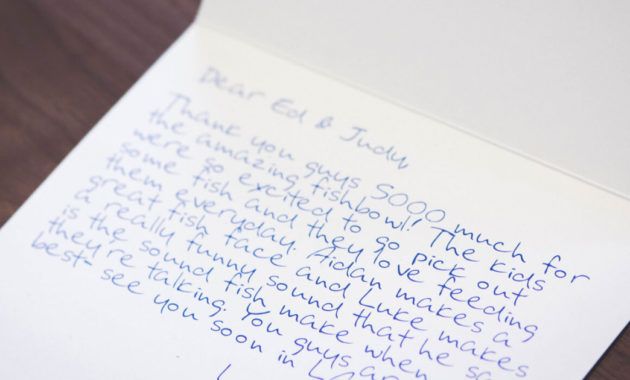 Dear Ed & Judy
Thank you guys SOOO much for
the amazing fishbowl! The kids
were so excited to go pick out
some fish and they love feeding
them everyday. Aidan makes a
great fish face and Luke makes
a really funny sound that he
is the sound fish make when
they're talking. You guys
best- see you soon in